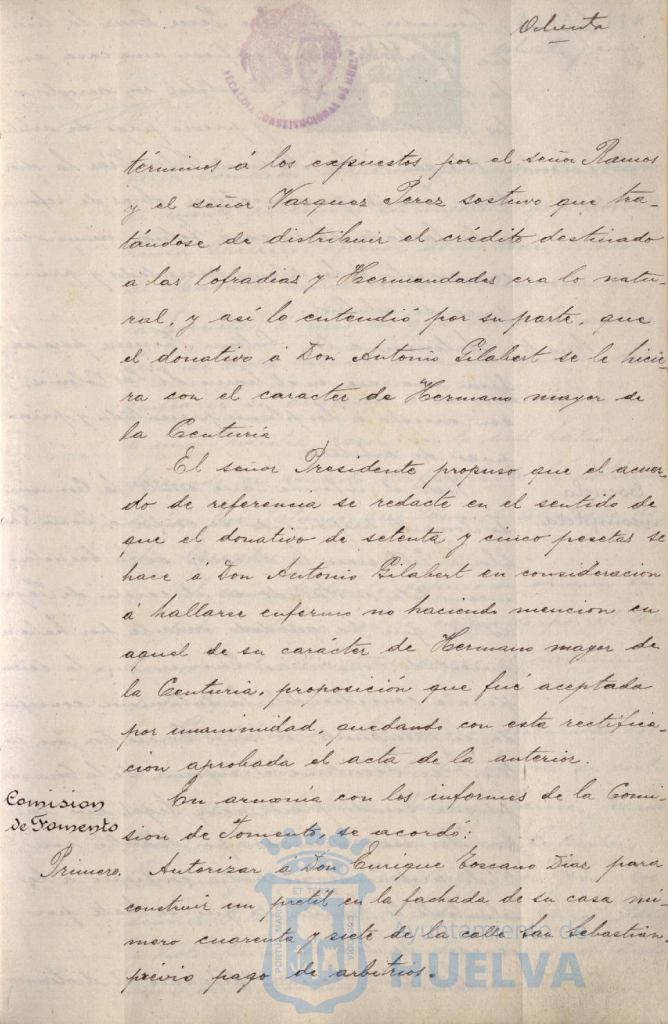 Ochenta
ALCALDIA CONSTITUCIONAL DE HUELVA
términos á los expuestos por el señor Ramos
y el señor Vazquez Perez sostuvo que tra-
tándose de distribuir el crédito destinado
a las Cofradias y Hermandades era lo natu-
ral, y así lo entendió por su parte, que
el donativo á Don Antonio Gilabert se le hicie-
ra con el caracter de Hermano mayor de
la Centuria
El señor Presidente propuso que el acuer-
do de referencia se redacte en el sentido de
que el donativo de setenta y cinco pesetas se
hace á Don Antonio Gilabert en consideracion
á hallarse enfermo no haciendo mencion en
aquel de su carácter de Hermano mayor de
la Centuria, proposición que fué aceptada
por unanimidad, quedando con esta rectifica-
cion aprobada el acta de la anterior.
Comision
de Fomento
En armonía con los informes de la Comi-
sion de Fomento, se acordó:
Primero. Autorizar a Don Enrique Toscano Diaz para
construir un pretil en la fachada de su casa nú-
mero cuarenta y siete de la calle San Sebastián,
previo pago de arbitrios.
Ayuntamiento de
HUELVA